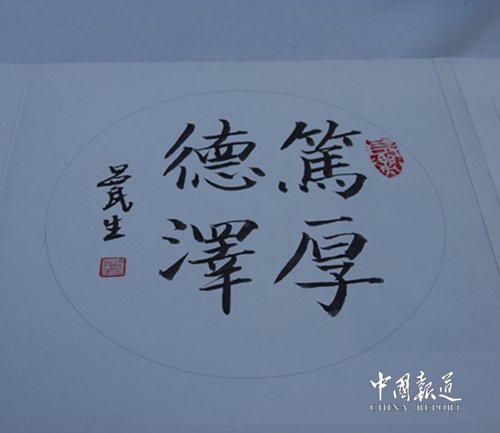 篤厚
德澤
吕民生
中國報道
CHINA REPORT